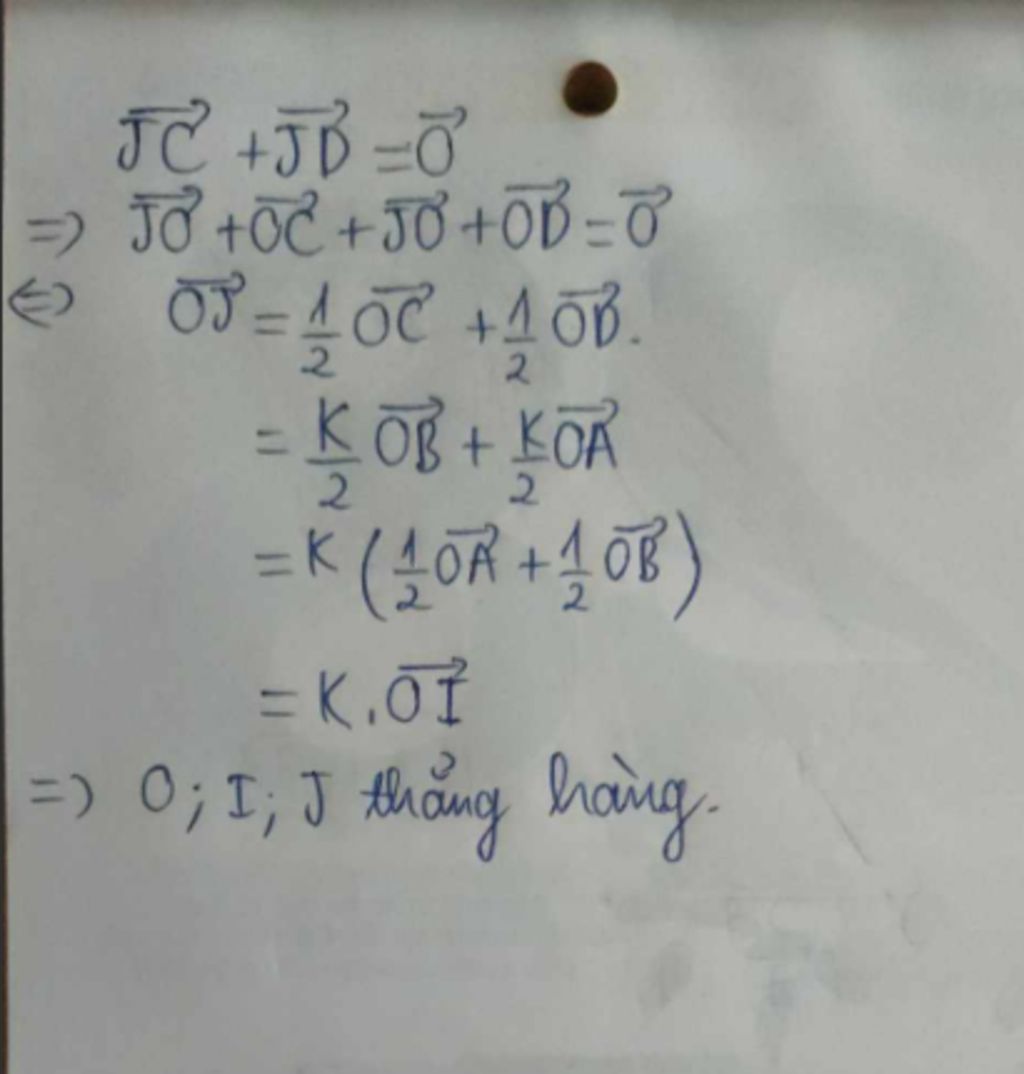 $\overrightarrow{JC} + \overrightarrow{JD} = \overrightarrow{O}$
$\Rightarrow \overrightarrow{JO} + \overrightarrow{OC} + \overrightarrow{JO} + \overrightarrow{OD} = \overrightarrow{O}$
$\Leftrightarrow \overrightarrow{OJ} = \frac{1}{2} \overrightarrow{OC} + \frac{1}{2} \overrightarrow{OD}.$
$= \frac{K}{2} \overrightarrow{OB} + \frac{K}{2} \overrightarrow{OA}$
$= K \left( \frac{1}{2} \overrightarrow{OA} + \frac{1}{2} \overrightarrow{OB} \right)$
$= K . \overrightarrow{OI}$
$\Rightarrow$ O; I; J thẳng hàng.